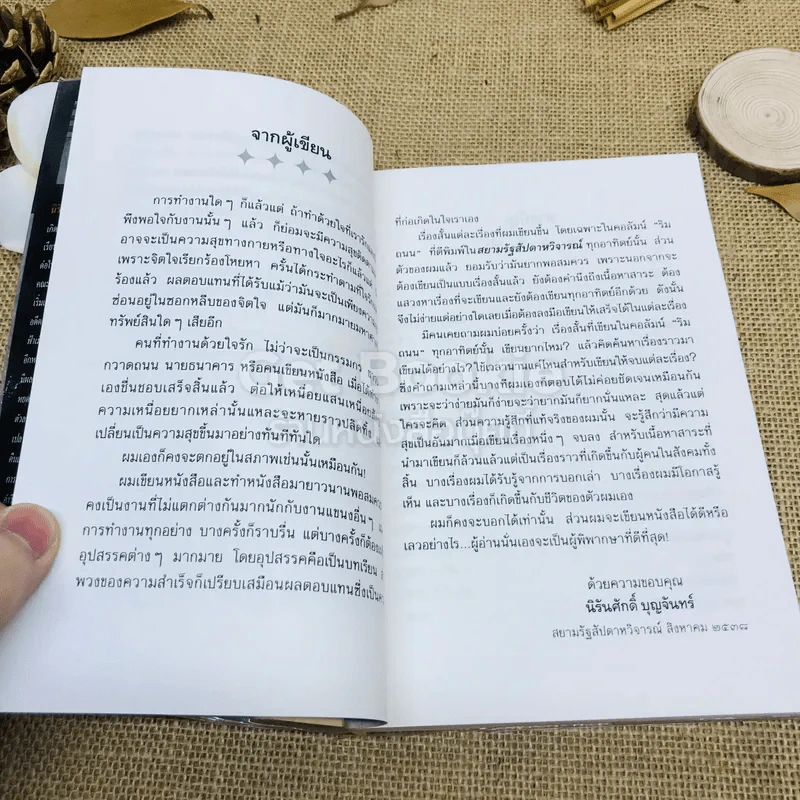 จากผู้เขียน
การทำงานใด ๆ ก็แล้วแต่ ถ้าทำด้วยใจที่เรารัก
พึงพอใจกับงานนั้น ๆ แล้ว ก็ย่อมจะมีความสุข
อาจจะเป็นความสุขทางกายหรือทางใจอะไรก็แล้วแต่
เพราะจิตใจเรียกร้องโหยหา ครั้นได้กระทำตามที่
ร้องแล้ว ผลตอบแทนที่ได้รับแม้ว่ามันจะเป็นเพียง
ซ่อนอยู่ในซอกหลืบของจิตใจ แต่มันก็มากมาย
ทรัพย์สินใด ๆ เสียอีก
คนที่ทำงานด้วยใจรัก ไม่ว่าจะเป็นกรรมกร
กวาดถนน นายธนาคาร หรือคนเขียนหนังสือ เมื่อ
เองชื่นชอบเสร็จสิ้นแล้ว ต่อให้เหนื่อยแสนเหนื่อย
ความเหนื่อยยากเหล่านั้นแหละจะหายราวปลิดทิ้ง
เปลี่ยนเป็นความสุขขึ้นมาอย่างทันทีทันใด
ผมเองก็คงจะตกอยู่ในสภาพเช่นนั้นเหมือนกัน!
ผมเขียนหนังสือและทำหนังสือมายาวนานพอสมควร
คงเป็นงานที่ไม่แตกต่างกันมากนักกับงานแขนงอื่น ๆ
การทำงานทุกอย่าง บางครั้งก็ราบรื่น แต่บางครั้งก็ต้อง
อุปสรรคต่าง ๆ มากมาย โดยอุปสรรคคือเป็นบทเรียน
พวงของความสำเร็จก็เปรียบเสมือนผลตอบแทนซึ่งเป็น
ที่ก่อเกิดในใจเราเอง
เรื่องสั้นแต่ละเรื่องที่ผมเขียนขึ้น โดยเฉพาะในคอลัมน์ "ริม
ถนน" ที่ตีพิมพ์ในสยามรัฐสัปดาหวิจารณ์ ทุกอาทิตย์นั้น ส่วน
ตัวของผมแล้ว ยอมรับว่ามันยากพอสมควร เพราะนอกจากจะ
ต้องเขียนเป็นแบบเรื่องสั้นแล้ว ยังต้องคำนึงถึงเนื้อหาสาระ ต้อง
แสวงหาเรื่องที่จะเขียนและยังต้องเขียนทุกอาทิตย์อีกด้วย ดังนั้น
จึงไม่ง่ายแต่อย่างใดเลยเมื่อต้องลงมือเขียนให้เสร็จได้ในแต่ละเรื่อง
มีคนเคยถามผมบ่อยครั้งว่า เรื่องสั้นที่เขียนในคอลัมน์ "ริม
ถนน" ทุกอาทิตย์นั้น เขียนยากไหม? แล้วคิดค้นหาเรื่องราวมา
เขียนได้อย่างไร? ใช้เวลานานแค่ไหนสำหรับเขียนให้จบแต่ละเรื่อง?
ซึ่งคำถามเหล่านี้บางทีผมเองก็ตอบได้ไม่ค่อยชัดเจนเหมือนกัน
เพราะจะว่าง่ายมันก็ง่ายจะว่ายากมันก็ยากนั่นแหละ สุดแล้วแต่
ใครจะคิด ส่วนความรู้สึกที่แท้จริงของผมนั้น จะรู้สึกว่ามีความ
สุขเป็นอันมากเมื่อเขียนเรื่องหนึ่ง ๆ จบลง สำหรับเนื้อหาสาระที่
นำมาเขียนก็ล้วนแล้วแต่เป็นเรื่องราวที่เกิดขึ้นกับผู้คนในสังคมทั้ง
สิ้น บางเรื่องผมได้รับรู้จากการบอกเล่า บางเรื่องผมมีโอกาสรู้
เห็น และบางเรื่องก็เกิดขึ้นกับชีวิตของตัวผมเอง
ผมก็คงจะบอกได้เท่านั้น ส่วนผมจะเขียนหนังสือได้ดีหรือ
เลวอย่างไร...ผู้อ่านนั่นเองจะเป็นผู้พิพากษาที่ดีที่สุด!
ด้วยความขอบคุณ
นิรันศักดิ์ บุญจันทร์
สยามรัฐสัปดาหวิจารณ์ สิงหาคม ๒๕๓๘